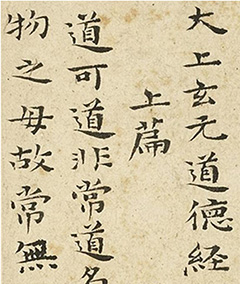 太上玄元道德経
上篇
道可道非常道名
物之母故常無